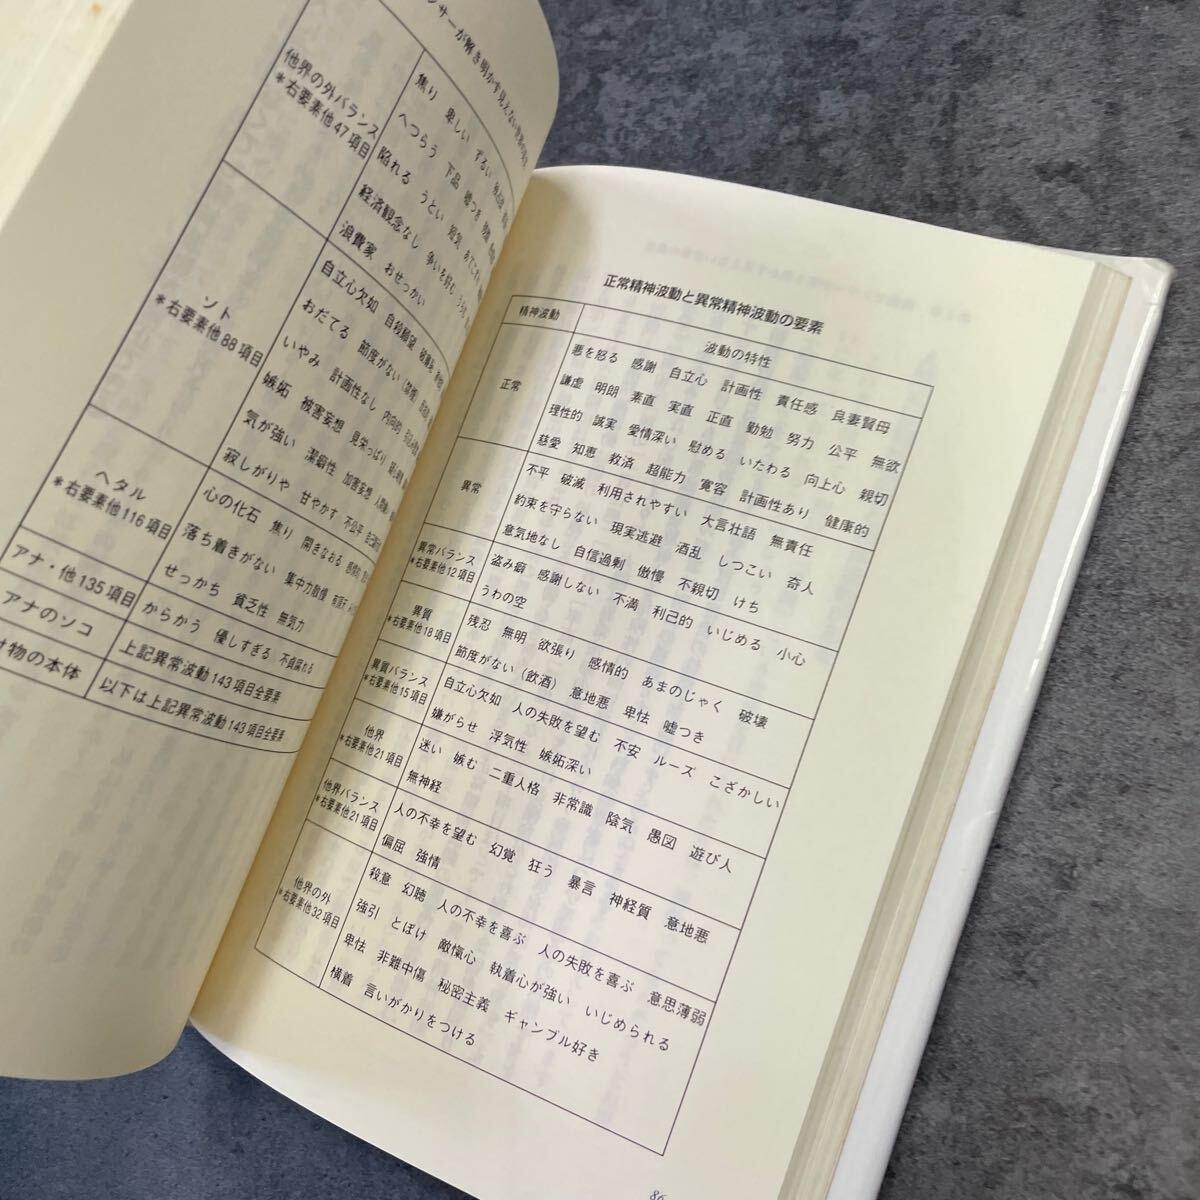 正常精神波動と異常精神波動の要素
精神波動 波動の特性
正常
悪を怒る 感謝 自立心 計画性 責任感 良妻賢母
謙虚 明朗 素直 実直 正直 勤勉 努力 公平 無欲
理性的 誠実 愛情深い 慰める いたわる 向上心 親切
慈愛 知恵 救済 超能力 寛容 計画性あり 健康的
異常
不平 破滅 利用されやすい 大言壮語 無責任
約束を守らない 現実逃避 酒乱 しつこい 奇人
意気地なし 自信過剰 傲慢 不親切 けち
異常バランス
*右要素他12項目
盗み癖 感謝しない 不満 利己的 いじめる 小心
うわの空
異質
*右要素他18項目
残忍 無明 欲張り 感情的 あまのじゃく 破壊
節度がない(飲酒) 意地悪 卑怯 嘘つき
異質バランス
*右要素他15項目
自立心欠如 人の失敗を望む 不安 ルーズ こざかしい
嫌がらせ 浮気性 嫉妬深い
他界
*右要素他21項目
迷い 嫉む 二重人格 非常識 陰気 愚図 遊び人
無神経
他界バランス
*右要素他21項目
人の不幸を望む 幻覚 狂う 暴言 神経質 意地悪
偏屈 強情
他界の外
*右要素他32項目
殺意 幻聴 人の不幸を喜ぶ 人の失敗を喜ぶ 意思薄弱
強引 とぼけ 敵愾心 執着心が強い いじめられる
卑怯 非難中傷 秘密主義 ギャンブル好き
横着 言いがかりをつける
86
ンサーが解き明かす見えない世界の
他界の外バランス
*右要素他47項目
焦り 卑しい ずるい
へつらう 下品 嘘つき
陥れる うとい 短気
経済観念なし 争いを好む
浪費家 おせっかい
ソト
*右要素他88項目
自立心欠如 自殺願望
おだてる 節度がない(禁煙)
いやみ 計画性なし 内向的
嫉妬 被害妄想 見栄っぱり
気が強い 潔癖性 加害妄想
寂しがりや 甘やかす 不公平
ヘタル
*右要素他116項目
心の化石 焦り 開きなおる
落ち着きがない 集中力散慢
せっかち 貧乏性 無気力
アナ・他135項目
からかう 優しすぎる 不貞腐れる
アナのソコ
上記異常波動143項目全要素
物の本体
以下は上記異常波動143項目全要素